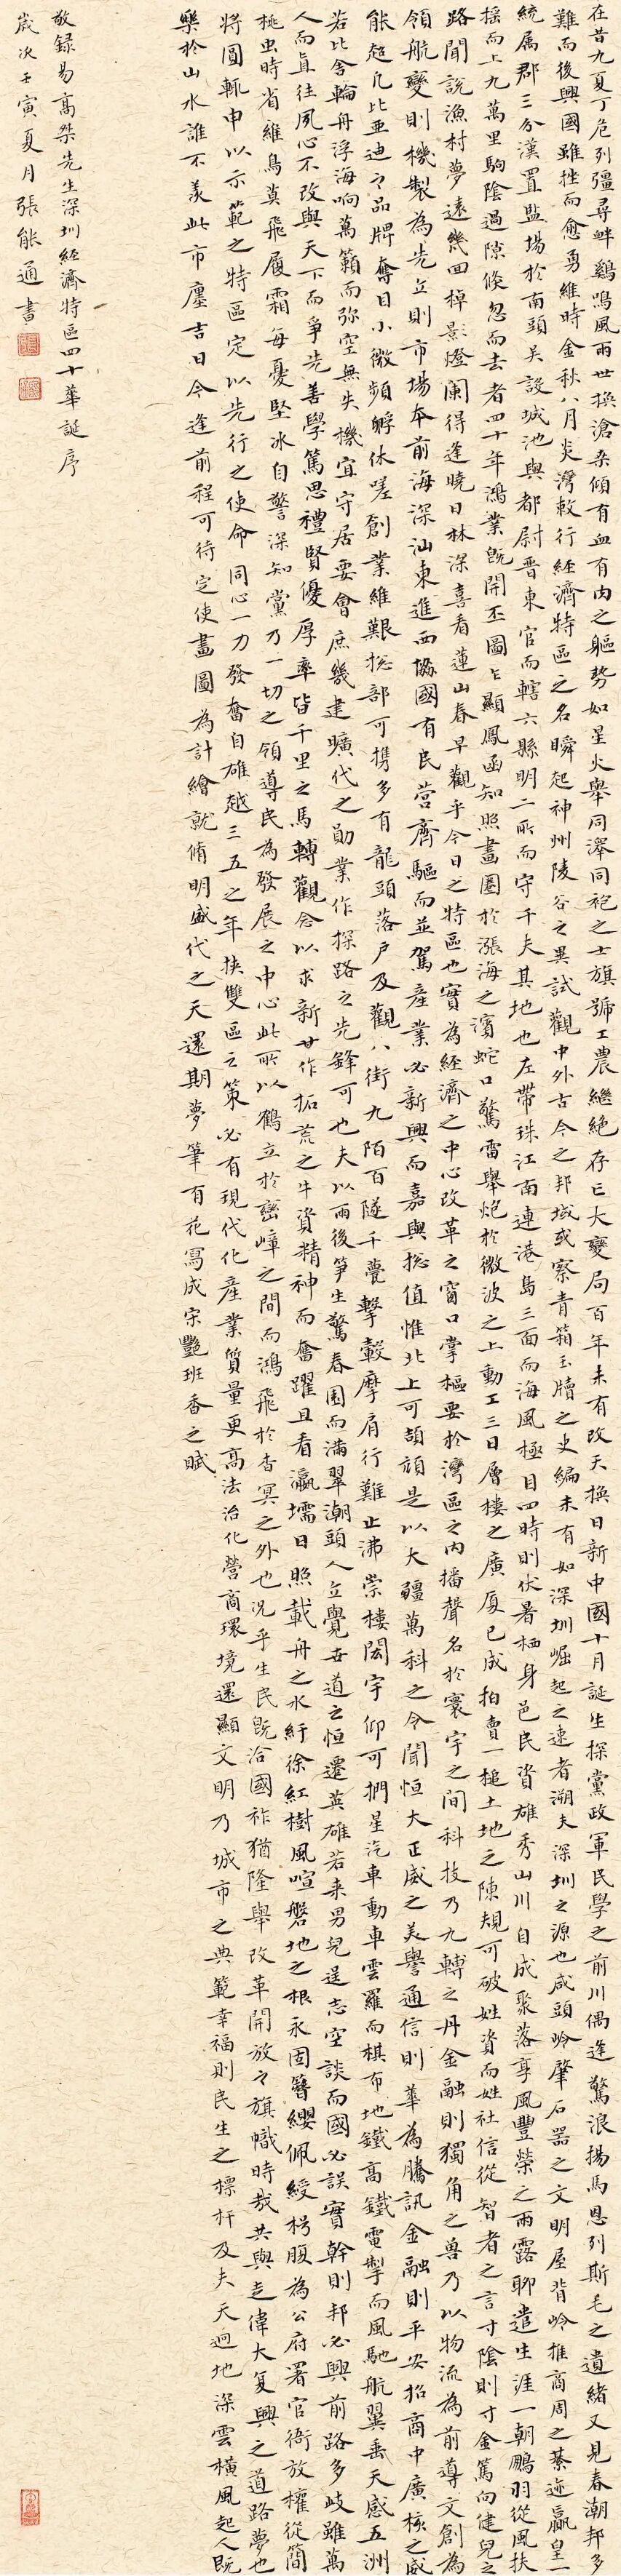 在昔九夏丁危列彊尋衅鷄鳴風雨世換滄桑傾有血有肉之軀勢如星火舉同澤同袍之士旗號工農繼絶存亡大變局百年未有改天換日新中國十月誕生探黨政軍民學之前川偶逢驚浪揚馬恩列斯毛之遺緒又見春潮邦多
難而後興國雖挫而愈勇維時金秋八月炎灣敕行經濟特區之名瞬起神州陵谷之異試觀中外古今之邦域或察青箱玉牘之史編未有如深圳崛起之速者溯夫深圳之源也咸頭岭肇石器之文明屋背岭推商周之綦迹嬴皇一
統属郡三分漢置監場於南頭吴設城池與都尉晋東官而轄六縣明二所而守千夫其地也左帶珠江南連港島三面而海風極目四時則伏暑栖身邑民資雄秀山川自成聚落享風豐榮之雨露聊遣生涯一朝鵬羽從風扶
摇而上九萬里駒陰過隙倏忽而去者四十年鴻業既開丕圖乍顯鳳函知照畫圈於漲海之濱蛇口驚雷舉炮於微波之上動工三日層樓之廣厦已成拍賣一槌土地之陳規可破姓資而姓社信從智者之言寸陰則寸金篤向健兒之
路聞說漁村夢遠幾回棹影燈闌得逢曉日林深喜看蓮山春早觀乎今日之特區也實為經濟之中心改革之窗口掌樞要於灣區之内播聲名於寰宇之間科技乃九轉之丹金融則獨角之兽乃以物流為前導文創為
領航變則機製為先立則市場本前海深汕東進西協國有民營齊驅而並駕産業必新興而嘉與捴值惟北上可頡頏是以大疆萬科之令聞恒大正威之美譽通信則華為騰訊金融則平安招商中廣核之威
能超凡比亚迪之品牌奪目小微頻孵休嗟創業維艱捴部可携多有龍頭落户及觀八街九陌百隧千甍擊轂摩肩行難止沸崇樓閎宇仰可捫星汽車動車雲羅而棋布地鐵高鐵電掣而風馳航翼垂天感五洲
若比舍輪舟浮海响萬籟而弥空無失機宜守居要會庶幾建曠代之勛業作探路之先鋒可也夫以雨後笋生驚春囿而滿翠潮頭人立覺世道之恒遷英雄若来男兒逞志空談而國必誤實幹則邦必興前路多歧雖萬
人而直往夙心不改與天下而争先善學篤思禮賢優厚率皆千里之馬轉觀念以求新甘作拓荒之牛資精神而奮躍且看瀛壖日照載舟之水紆徐紅樹風喧磐地之根永固簪纓佩綬枵腹為公府署官衙放權從簡
桃虫時省維鳥莫飛履霜每憂堅冰自警深知黨乃一切之領導民為發展之中心此所以鶴立於巒嶂之間而鴻飛於杳冥之外也况乎生民既洽國祚猶隆舉改革開放之旗幟時哉共與走偉大复興之道路夢也
將圓輒申以示範之特區定以先行之使命同心一力發奮自雄越三五之年挟雙區之策必有現代化産業質量更高法治化營商環境還顯文明乃城市之典範幸福則民生之標杆及夫天迥地深雲横風起人既
樂於山水誰不羨此市廛吉日今逢前程可待定使畫圖為計繪就脩明盛代之天還期夢筆有花寫成宋艷班香之賦
敬録易高桀先生深圳經濟特區四十華誕序
歲次壬寅夏月張能通書